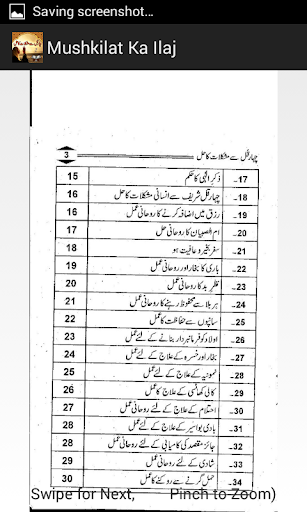 Saving screenshot...
Mushkilat Ka Ilaj
چہار قل سے مشکلات کا حل 3
17۔ ذکر الٰہی کا حکم 15
18۔ چہار قل شریف سے انسانی مشکلات کا حل 16
19۔ رزق میں اضافہ کرنے کا روحانی عمل 16
20۔ ام الصبیان کا روحانی حل 17
21۔ سفر بخیر و عافیت ہو 18
22۔ باری کا بخار اور روحانی عمل 19
23۔ نظر بد کا روحانی عمل 20
24۔ ہر بلا سے محفوظ رہنے کا روحانی عمل 21
25۔ سانپوں سے حفاظت کا عمل 22
26۔ اولاد کو فرمانبردار بنانے کے لئے عمل 23
27۔ بخار اور خسرہ کے علاج کے لئے عمل 24
28۔ نمونیہ کے علاج کے لئے عمل 25
29۔ کالی کھانسی کے علاج کا عمل 26
30۔ احتلام کے علاج کے لئے عمل 27
31۔ بادی بواسیر کے علاج کے لئے عمل 28
32۔ جائز مقصد کی کامیابی کے لئے عمل 28
33۔ شادی کے لئے عمل 29
34۔ حمل گرنے سے روکنے کا عمل 30
Swipe for Next, Pinch to Zoom)